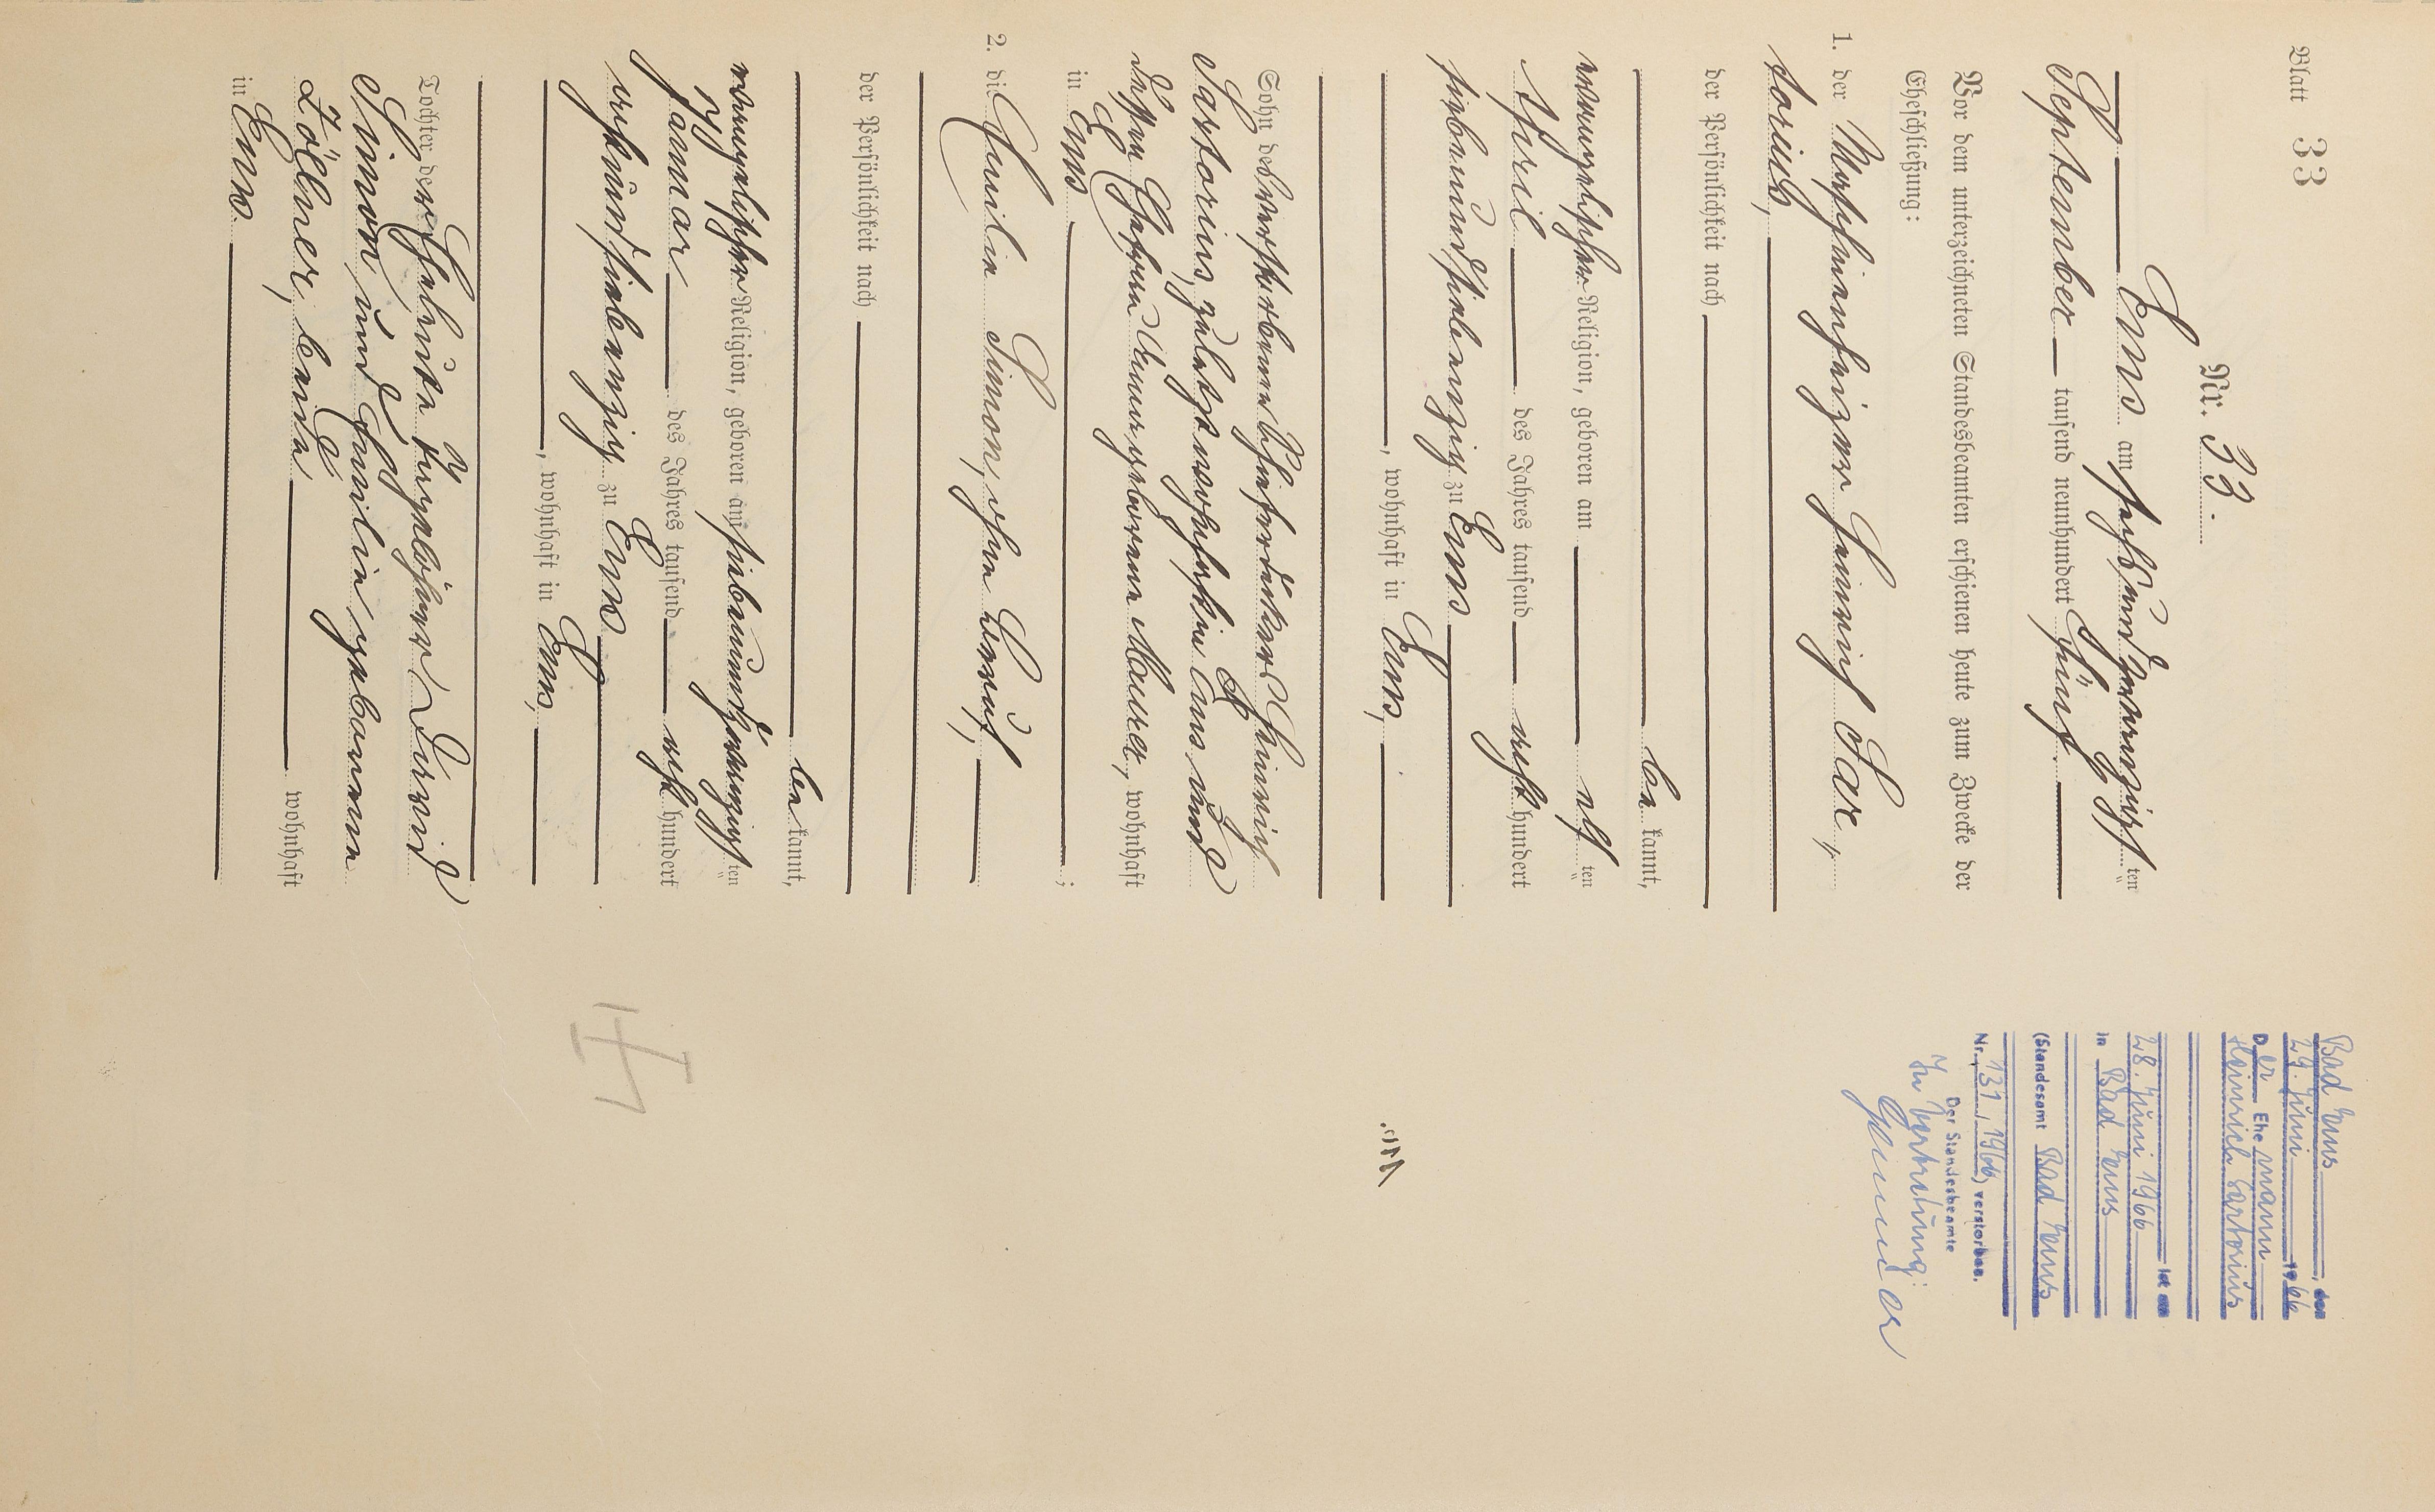 Blatt 33
Nr. 33.
Ems am sechsundzwanzigsten
September tausend neunhundert fünf
Vor dem unterzeichneten Standesbeamten erschienen heute zum Zwecke der
Eheschließung:
1. der Maschinenheizer Heinrich Sar¬
torius,
der Persönlichkeit nach
be kannt,
evangelischer Religion, geboren am elf ten
April des Jahres tausend acht hundert
siebenundsiebenzig zu Ems
, wohnhaft in Ems,
Sohn des verstorbenen Heinrich
Sartorius, zuletzt wohnhaft in Ems und
dessen Ehefrau geborene Maurer, wohnhaft
in Ems ;
2. die Emilie Simon, ohne Beruf,
der Persönlichkeit nach
be kannt,
evangelischer Religion, geboren am siebenundzwanzigsten
Januar des Jahres tausend acht hundert
achtundsiebenzig zu Ems
, wohnhaft in Ems,
Tochter der Eheleute David
Simon und Emilie geborenen
Zöllner, beide wohnhaft
in Ems.
Bad Ems, den
29. Juni 1966
Der Ehemann
Heinrich Sartorius
ist am
28. Juni 1966
in Bad Ems
(Standesamt Bad Ems
Nr. 131/1966) verstorben.
Der Standesbeamte
In Vertretung: